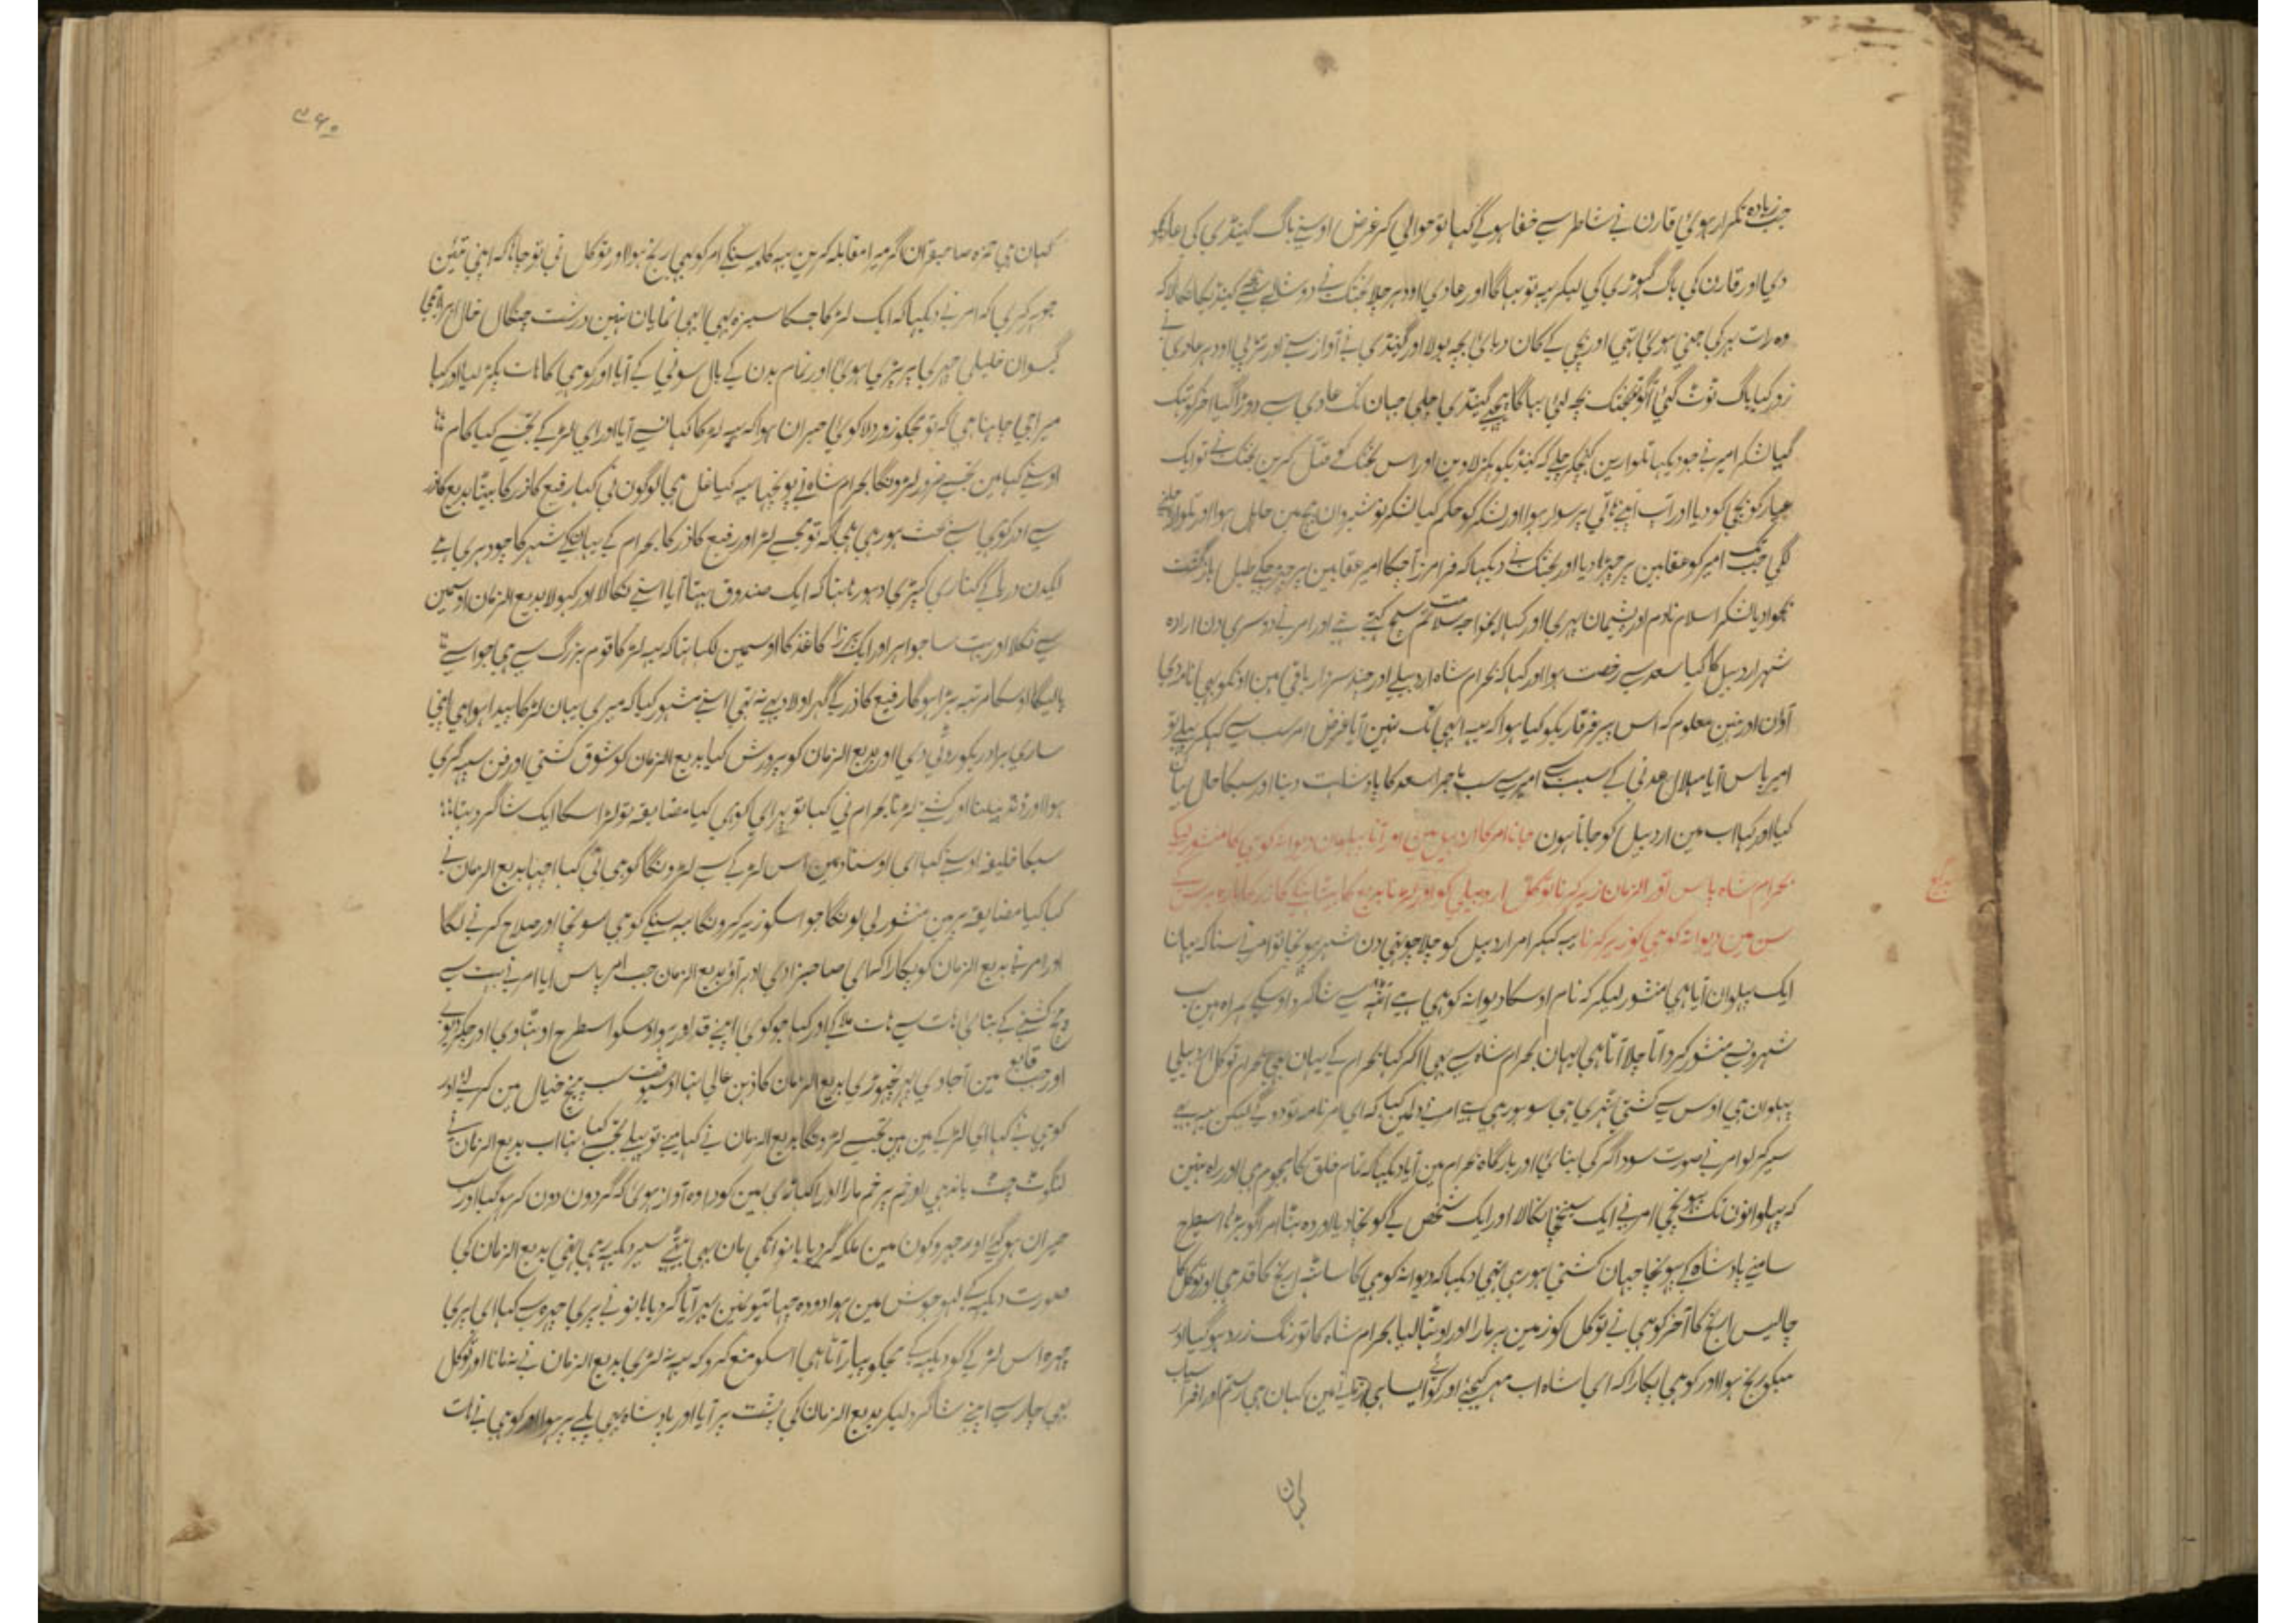 جب زیادہ تکرار ہوئی قارن نے شاطر سے خفا ہوکے کہا تو حوالی کر غرض اوسنے باگ گینڈی کی
دی اور قارن کی باگ گہوڑی کی لیکر یہ تو بہاگا اور عادی اودہر چلا بختک نے دوشالے سے بچہ گینڈیکا نکالا کہ
وہ رات بہر کی جنی ہوئی تہی اور بچی کے کان دبائی بچہ بولا اور گینڈی نے آواز سنے اور تڑپی اودہر عادی نے
زور کیا باگ ٹوٹ گئی آگو بختک بچہ لئی بہاگا پیچہے گینڈی چلی جہان تک عادی سے دوڑا گیا آخر کو تہک
گیا لشکر امیر نے جو دیکہا تلوارین کہنچکر چلے کہ گینڈیکو پکڑ لاوین اور اس بختک کو قتل کرین بختک نے تو ایک
عیار کو بچی کو دیا اور آپ اپنے ہاتی پر سوار ہوا اور لشکر کو حکم کیا لشکر نوشیروان بیچ مین حایل ہوا اور تلوار چلنے
لگی جب تک امیر کو عقابین پر چڑہا دیا اور بختک نے دیکہا کہ فرامرز آچکا امیر عقابین پر چڑہ چکے طبل بازگشت
بجوادیا لشکر اسلام نادم اور پشیمان پہرے اور کہا ایخواجہ سلامت تم سچ کہتے تہے اور امر نے دوسری دن ارادہ
شہر اردبیل کا کیا سعد سے رخصت ہوا اور کہا کہ بحرام شاہ اردبیلے اور چند سردار باقی ہین اونکو بہی نامہ دی
آؤن اور نہین معلوم کہ اس پیر فرقاریکو کیا ہوا کہ یہ ابہی تک نہین آیا غرض امر سب سے کہکر پہلے تو
امیر پاس آیا ہلال عدنی کے سبب سے امیر سے سب ماجرا سعد کا بادشاہت دینا اور سبکا حال بیان
کیا اور کہا اب مین اردبیل کو جاتا ہون جانا امر کا اردبیل مین اور آنا پہلوان دیوانہ کوہی کا منشور لیکر
بحرام شاہ پاس اور الزمان زیر کرنا توکل اردبیلی کو اور لڑنا بدیع کا بیٹا بنکے گازر کا بارہ برس کے
بدیع
سن مین دیوانہ کوہی کو زیر کرنا یہ کہکر امر اردبیل کو چلا چوتہی دن شہر پہونچا تو امر نے سنا کہ یہان
ایک پہلوان آیا ہی منشور لیکر کہ نام اوسکا دیوانہ کوہی ہے شاگرد اوسکے ہمراہ ہین سب
شہرونسے منشور کرواتا چلا آتا ہی یہان بحرام شاہ سے بہی آکر کہا بحرام کے یہان بہی بحرام توکل اردبیلی
پہلوان ہی اوس سے کشتی ٹہری ہی سو ہورہی ہے امر نے دلمین کہا کہ ای امر نامہ تو دوگے لیکن یہ بہی
سیر کرلو امر نے صورت سوداگر کی بنائی اور بارگاہ بحرام مین آیا دیکہا کہ تمام خلق کا ہجوم ہی اور راہ نہین
کہ پہلوانون تک پہونچی امر نے ایک سینخچا نکالا اور ایک شخص کے گونچا دیا اور وہ ہٹا امر آگو بڑہا اسیطرح
سامنے پادشاہ کے پہونچا جہان کشتی ہورہی تہی دیکہا کہ دیوانہ کوہی کا ساٹہہ ارنج کا قد ہی اور توکل کا
چالیس ارنج کا آخر کوہی نے توکل کو زمین پر مارا اور اوٹہا لیا بحرام شاہ کا تو رنگ زرد ہوگیا اور
سبکو رنج ہوا اور کوہی پکارا کہ ای شاہ اب مہر کیجئے اور کوئی ایسا ہی زمانے مین کہان ہی رستم اور افراسیاب
کہان
۳۶۰
کہان ہی حمزہ صاحبقران اگر میرا مقابلہ کرین یہ کلمہ سنکے امر کو بہی رنج ہوا اور توکل نی تو چاہا کہ اپنی تئین
جوہر کری کہ امر نے دیکہا کہ ایک لڑکا جسکا سبزہ بہی ابہی نمایان نہین درشت چنگال خال
گیسوان خلیلی چہری پر پڑی ہوئی اور تمام بدن کے بال سونی کے آیا اور کوہی کا ہات پکڑ لیا اور کہا
میرا جی چاہتا ہی کہ تو مجکو زور دلا کوئی حیران ہوا کہ یہ لڑکا کہانسے آیا اور ای لڑکے تجہے کیا کام
اوسنے کہا مین تجہسے ضرور لڑونگا بحرام شاہ نے پوچہا یہ کیا غل ہی لوگون نی کہا رفیع گازر کا بیٹا بدیع گازر
ہے اور کوہی سے بحث ہورہی ہی کہ تو مجہسے لڑ اور رفیع گازر کا بحرام کے یہانکے شہر کا چودہری ہے
ایکدن دریا کے کناری کپڑی دہورہا تہا کہ ایک صندوق بہتا آیا اسنے نکالا اور کہولا بدیع الزمان اوسمین
سے نکلا اور بہت سا جواہر اور ایک پرزا کاغذ کا اوسمین لکہا تہا کہ یہ لڑکا قوم بزرگ سے ہی جو اسے
پالیگا اوسکا مرتبہ بڑا ہوگا رفیع گازر کے گہر اولاد بہی نہ تہی اسنے مشہور کیا کہ میری یہان لڑکا پیدا ہوا ہی اپنی
ساری برادریکو روٹی دی اور بدیع الزمان کو پرورش کیا بدیع الزمان کو شوق کشتی اور فن سپہ گری
ہوا اور کشتی لڑتا بحرام نی کہا تو پہر ای کوہی کیا مضایقہ تو لڑ اسکا ایک شاگرد تہا
سبکا خلیفہ اوسنے کہا ای اوستاد مین اس لڑکے سے لڑونگا کوہی نی کہا اچہا بدیع الزمان نے
کہا کیا مضایقہ پر مین منشور لی لونگا جو اسکو زیر کرونگا یہ سنکے کوہی سونچا اور صلاح کرنے لگا
اور امر نے بدیع الزمان کو پکارا کہ ای صاحبزادی ادہر آؤ بدیع الزمان جب امر پاس آیا امر نے بہت سے
پیچ کشتی کے بتائی ہات سے ہات ملاکے اور کہا جو کوئی اپنے قد اور ہو اوسکو اسطرح اوٹہاوی اور جکڑ دیوے
اور جب قابو مین آجاوی پہر نچہوڑی بدیع الزمان کا ذہن عالی تہا اوسیوقت سب پیچ خیال مین کرلئے اور
کوہی نے کہا ای لڑکے مین ہین تجہسے لڑونگا بدیع الزمان نے کہا مینے تو پہلے تجہسے کہا تہا اب بدیع الزمان نے
لنگوٹ چست باندہی اور خم پر خم مارا اور اکہاڑی مین کودا وہ آواز ہوئی کہ گردون دون کر ہوگیا اور سب
حیران ہوگئے اور جہروکون مین ملکہ گردیا بانو انکی مان بہی بیٹہے سیر دیکہہ رہی تہی بدیع الزمان کی
صورت دیکہہ کے لہو جوش مین ہوا دودہ چہاتیونمین بہر آیا گردیا بانو نے پری چہرہ سے کہا ای پری
چہرہ اس لڑکے کو دیکہہ کے مجکو پیار آتا ہی اسکو منع کرو کہ یہ نہ لڑی بدیع الزمان نے نمانا اور توکل
بہی چار سے اپنے شاگرد لیکر بدیع الزمان کی پشت پر آیا اور بادشاہ بہی پلے پر ہوا اور کوہی نے ہات